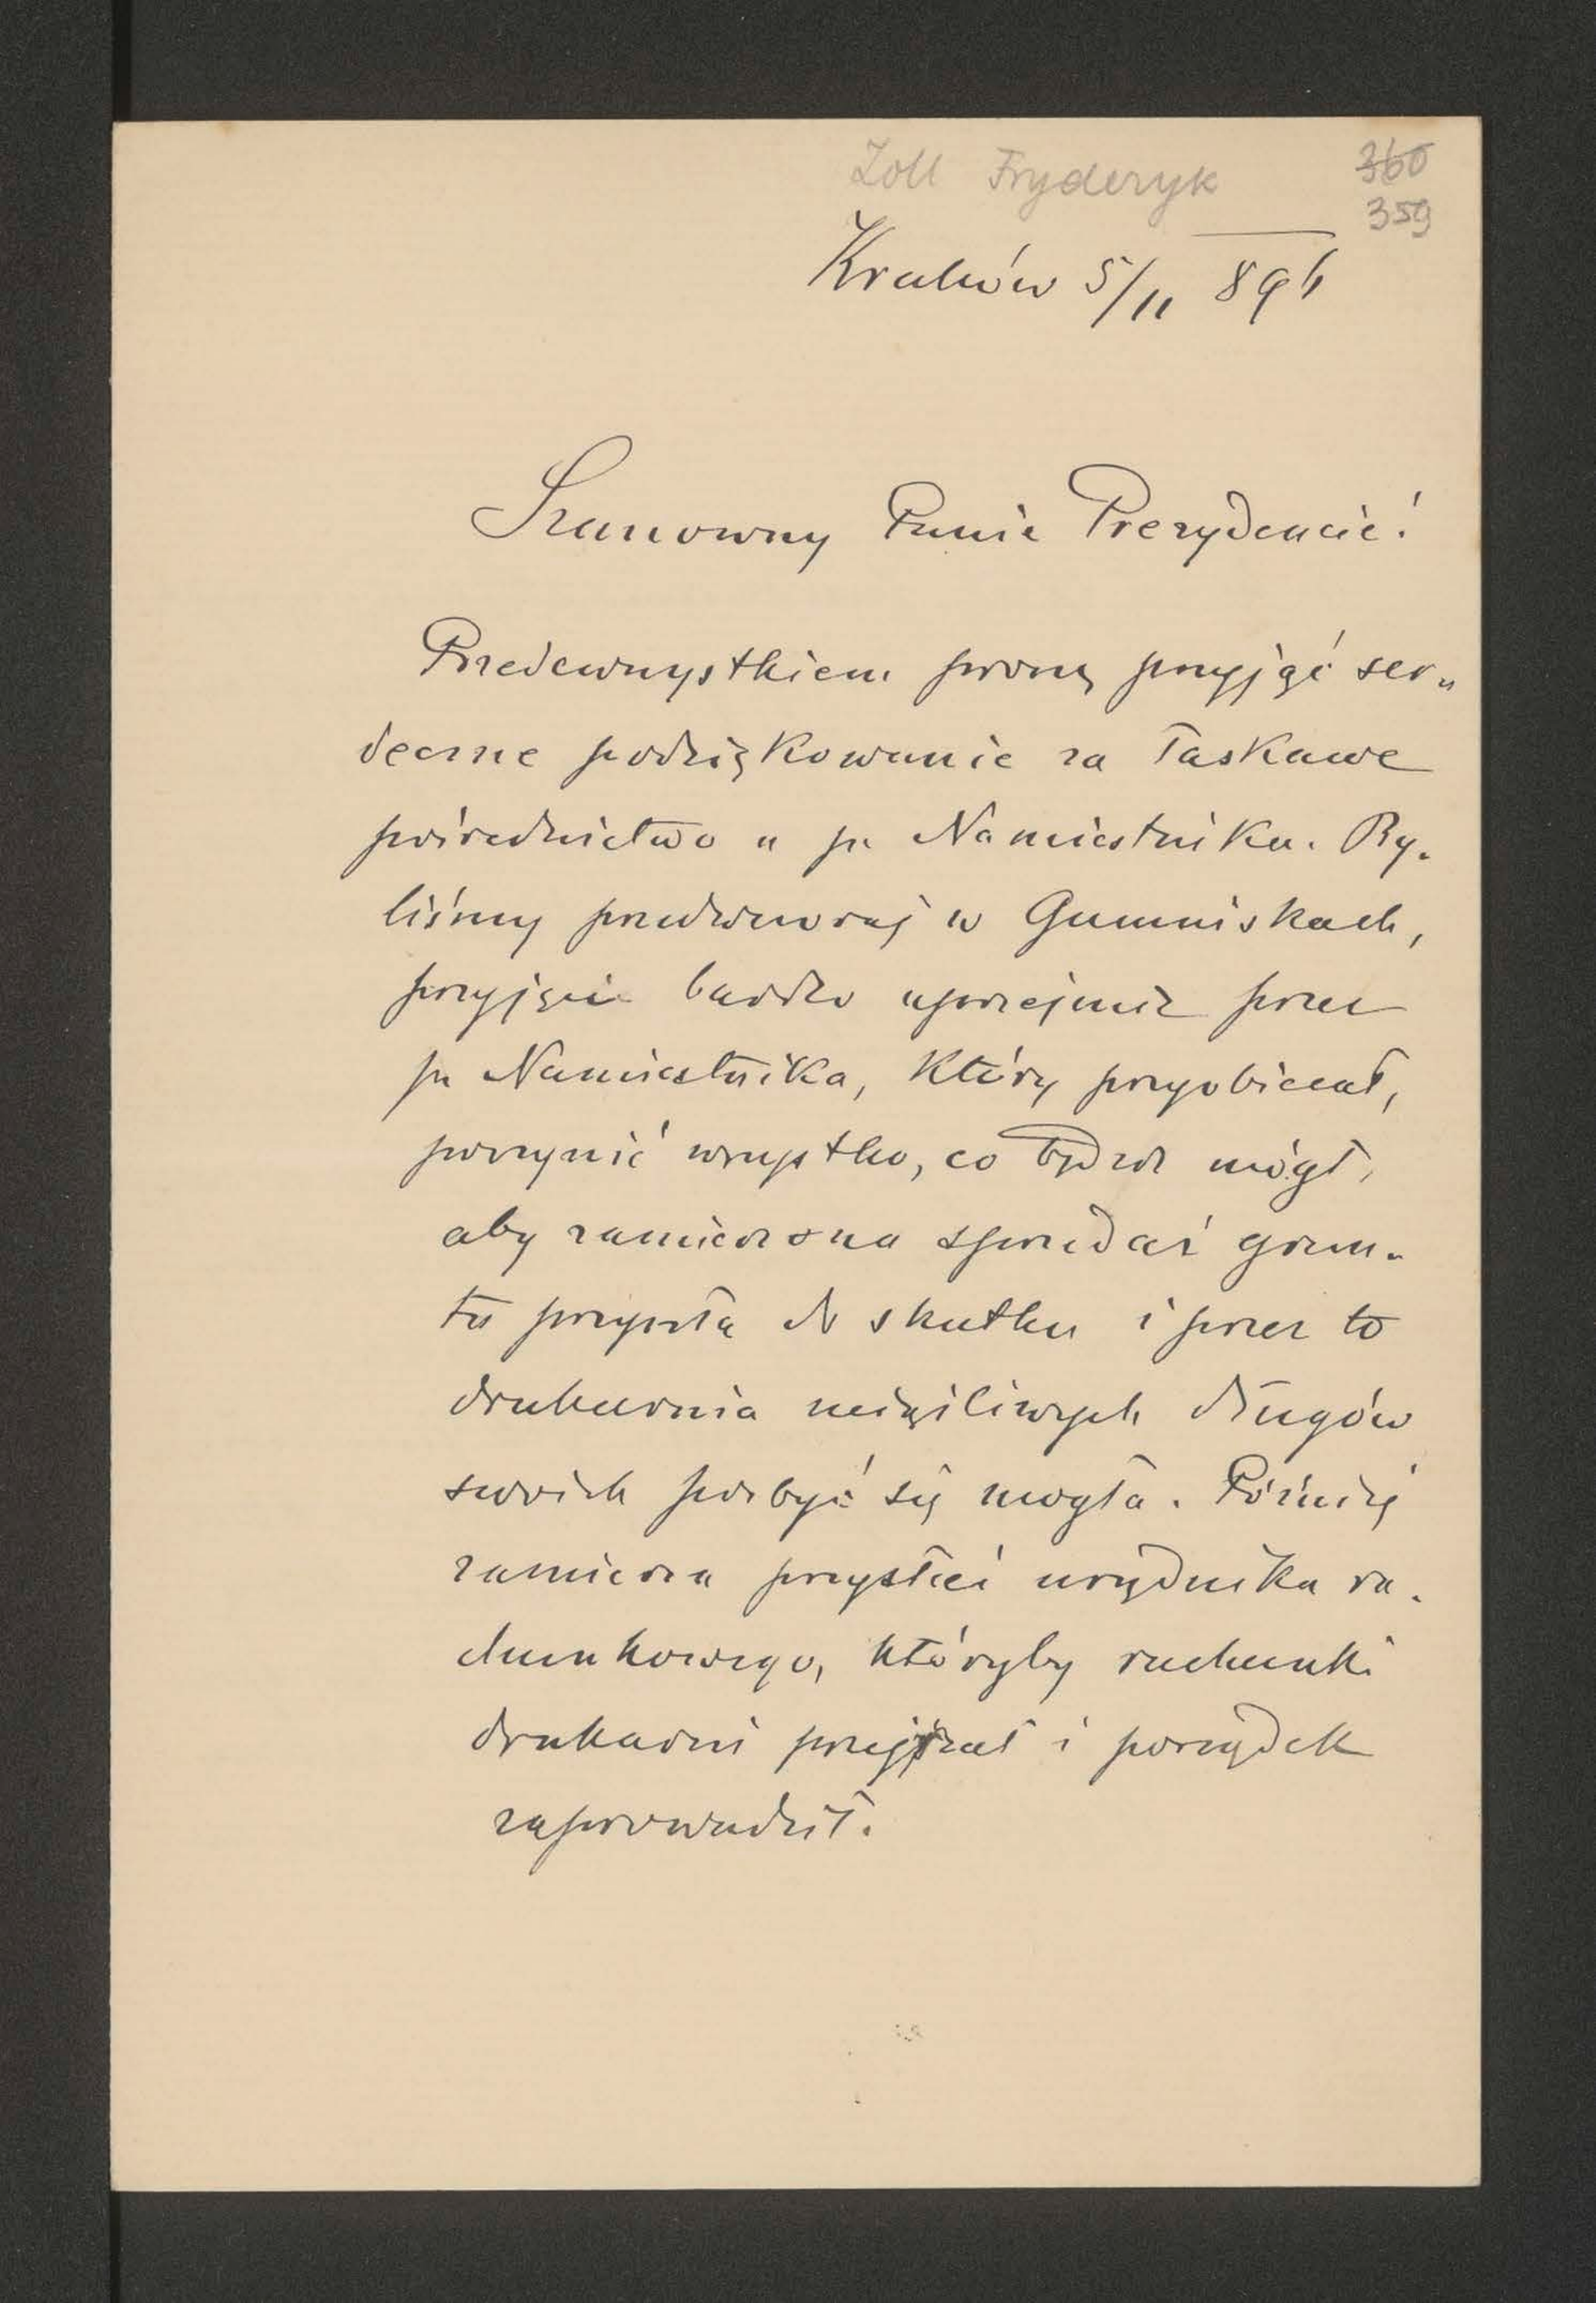 Zoll Fryderyk
360
359
Kraków 5/11 896
Szanowny Panie Prezydencie!
Przedewszystkiem proszę przyjąć ser„
deczne podziękowanie za łaskawe
pośrednictwo u p. Namiestnika. By„
liśmy przedwczoraj w Gumniskach,
przyjęci bardzo uprzejmie przez
p. Namiestnika, który przyobiecał,
poczynić wszystko, co będzie mógł,
aby zamierzona sprzedaż grun„
tu przyszła do skutku i przez to
drukarnia uciążliwych długów
swoich pozbyć się mogła. Później
zamierza przysłać urzędnika ra„
chunkowego, któryby rachunki
drukarni przejrzał i porządek
zaprowadził.